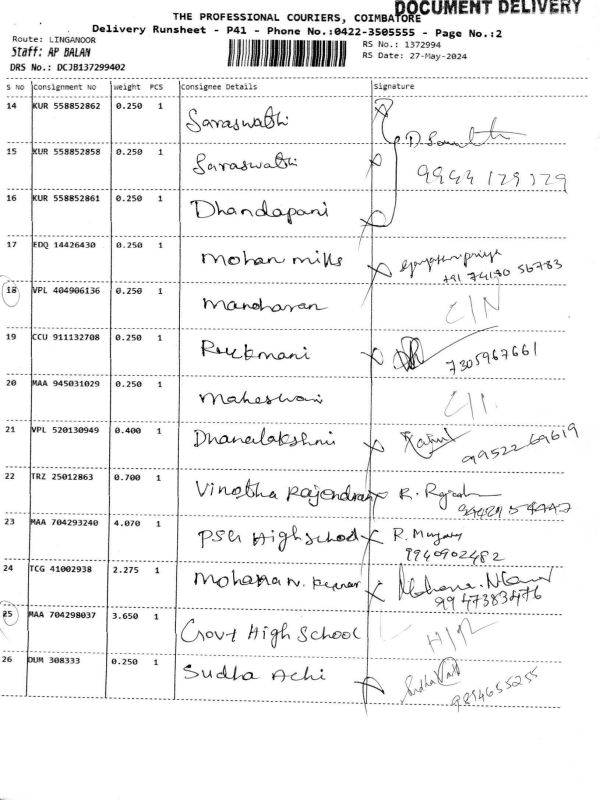 DOCUMENT DELIVERY
THE PROFESSIONAL COURIERS, COIMBATORE
Delivery Runsheet - P41 - Phone No.:0422-3505555 - Page No.:2
Route: LINGANOOR RS No.: 1372994
Staff: AP BALAN RS Date: 27-May-2024
DRS No.: DCJB137299402
S No Consignment No Weight PCS Consignee Details Signature
14 KUR 558852862 0.250 1 Saraswathi
15 KUR 558852858 0.250 1 Saraswathi
9944 129129
16 KUR 558852861 0.250 1 Dhandapani
17 EDQ 14426430 0.250 1 Mohan mills
+91 74190 56783
18 VPL 404906136 0.250 1 Manoharan
19 CCU 911132708 0.250 1 Rukmani
7305967661
20 MAA 945031029 0.250 1 Maheswari
21 VPL 520130949 0.400 1 Dhanalakshmi
99522 69619
22 TRZ 25012863 0.700 1 Vinotha Rajendran
23 MAA 704293240 4.070 1 PSG High School R.
9940902482
24 TCG 41002938 2.275 1 Mohana N.
9947383476
25 MAA 704298037 3.650 1 Govt High School
26 DUM 308333 0.250 1 Sudha Achi Sudha
9894655255